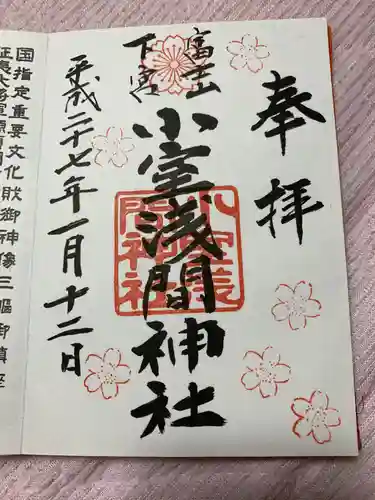 奉拝
富士山
下宮
小室浅間神社
小室浅
間神社
平成二十七年一月十二日
国指定重要文化財御神像三軀御鎮座